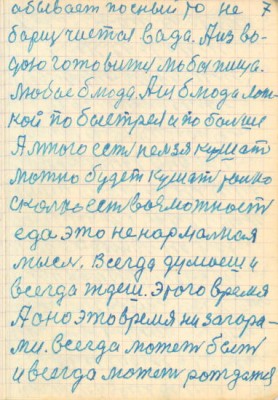 абывает посный то не 7
барщ чистая вада. Аиз во-
дою готовитя любая пища.
Любое блюда. Аиз блюда лож-
кой по быстрея и по больше
Амного есть нелзя кушат
можно будет кушат только
сколко есть возможност
еда это ненормалная
мысл. Всегда думаеш и
всегда ждеш. Этого время
Аоно это время ни загора-
ми. всегда может быть
и всегда может рождатся